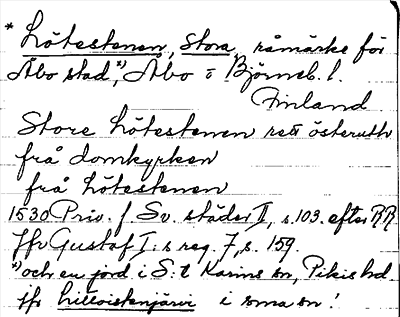 * Lötestenen, Stora, råmärke för
Åbo stad,*) Åbo o Björneb. l.
Finland
Store Lötestenen rett österuth
frå domkyrken
frå Lötestenen
1530 Priv. f Sv. städer II, s. 103. efter RR
Jfr Gustaf I:s reg. 7, s. 159.
*) och en jord i S:t Karins sn, Pikis hd
jfr Lilloistenjärvi i soma sn!